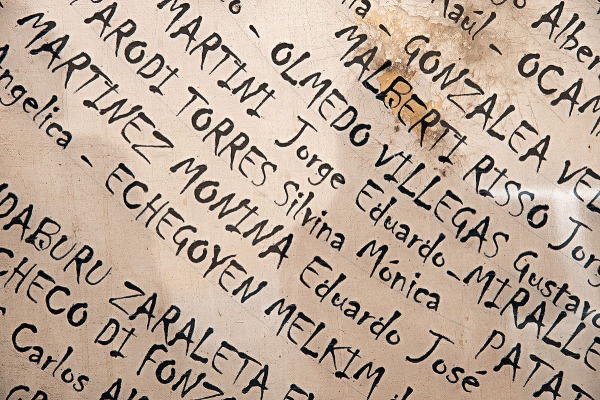 Alber
Raúl - OCAM
- GONZALEA VEL
MALBERTI RISSO Jorg
- OLMEDO VILLEGAS Gustavo
MARTINI Jorge Eduardo - MIRALLE
PARODI TORRES Silvina Mónica PATAT
MARTINEZ MONINA Eduardo José
Angelica - ECHEGOYEN MELKIM
DABURU ZARALETA
CHECO DI FONZO
Carlos